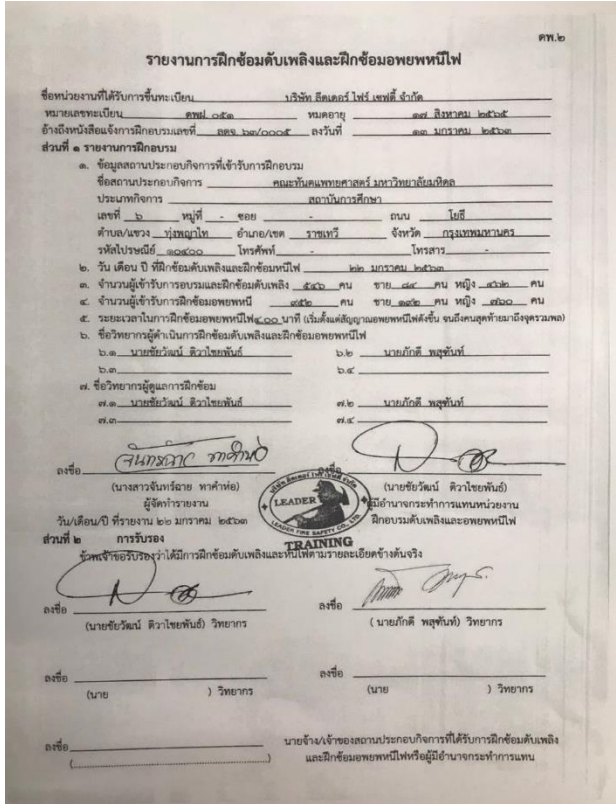 ดพ.๒
รายงานการฝึกซ้อมดับเพลิงและฝึกซ้อมอพยพหนีไฟ
ชื่อหน่วยงานที่ได้รับการขึ้นทะเบียน บริษัท ลีดเดอร์ ไฟร์ เซฟตี้ จำกัด
หมายเลขทะเบียน ดพฝ. ๐๕๑ หมดอายุ ๑๗ สิงหาคม ๒๕๖๕
อ้างถึงหนังสือแจ้งการฝึกอบรมเลขที่ ลดจ ๖๓/๐๐๐๕ ลงวันที่ ๑๓ มกราคม ๒๕๖๓
ส่วนที่ ๑ รายงานการฝึกอบรม
๑. ข้อมูลสถานประกอบกิจการที่เข้ารับการฝึกอบรม
ชื่อสถานประกอบกิจการ คณะทันตแพทยศาสตร์ มหาวิทยาลัยมหิดล
ประเภทกิจการ สถาบันการศึกษา
เลขที่ ๖ หมู่ที่ - ซอย - ถนน โยธี
ตำบล/แขวง ทุ่งพญาไท อำเภอ/เขต ราชเทวี จังหวัด กรุงเทพมหานคร
รหัสไปรษณีย์ ๑๐๔๐๐ โทรศัพท์ - โทรสาร -
๒. วัน เดือน ปี ที่ฝึกซ้อมดับเพลิงและฝึกซ้อมหนีไฟ ๒๒ มกราคม ๒๕๖๓
๓. จำนวนผู้เข้ารับการอบรมและฝึกซ้อมดับเพลิง ๕๔๖ คน ชาย ๘๔ คน หญิง ๔๖๒ คน
๔. จำนวนผู้เข้ารับการฝึกซ้อมอพยพหนี ๙๕๒ คน ชาย ๑๙๒ คน หญิง ๗๖๐ คน
๕. ระยะเวลาในการฝึกซ้อมอพยพหนีไฟ ๔.๐๐ นาที (เริ่มตั้งแต่สัญญาณอพยพหนีไฟดังขึ้น จนถึงคนสุดท้ายมาถึงจุดรวมพล)
๖. ชื่อวิทยากรผู้ดำเนินการฝึกซ้อมดับเพลิงและฝึกซ้อมอพยพหนีไฟ
๖.๑ นายชัยวัฒน์ ติวาไชยพันธ์ ๖.๒ นายภักดี พสุฑันท์
๖.๓ ๖.๔
๗. ชื่อวิทยากรผู้ดูแลการฝึกซ้อม
๗.๑ นายชัยวัฒน์ ติวาไชยพันธ์ ๗.๒ นายภักดี พสุฑันท์
๗.๓ ๗.๔
ลงชื่อ จันทร์ฉาย ทาคำห่อ ลงชื่อ
(นางสาวจันทร์ฉาย ทาคำห่อ) (นายชัยวัฒน์ ติวาไชยพันธ์)
ผู้จัดทำรายงาน ผู้มีอำนาจกระทำการแทนหน่วยงาน
วัน/เดือน/ปี ที่รายงาน ๒๒ มกราคม ๒๕๖๓ ฝึกอบรมดับเพลิงและอพยพหนีไฟ
LEADER
LEADER FIRE SAFETY CO., LTD.
TRAINING
ส่วนที่ ๒ การรับรอง
ข้าพเจ้าขอรับรองว่าได้มีการฝึกซ้อมดับเพลิงและหนีไฟตามรายละเอียดข้างต้นจริง
ลงชื่อ ลงชื่อ
(นายชัยวัฒน์ ติวาไชยพันธ์) วิทยากร ( นายภักดี พสุฑันท์) วิทยากร
ลงชื่อ ลงชื่อ
(นาย ) วิทยากร (นาย ) วิทยากร
ลงชื่อ นายจ้าง/เจ้าของสถานประกอบกิจการที่ได้รับการฝึกซ้อมดับเพลิง
( ) และฝึกซ้อมอพยพหนีไฟหรือผู้มีอำนาจกระทำการแทน